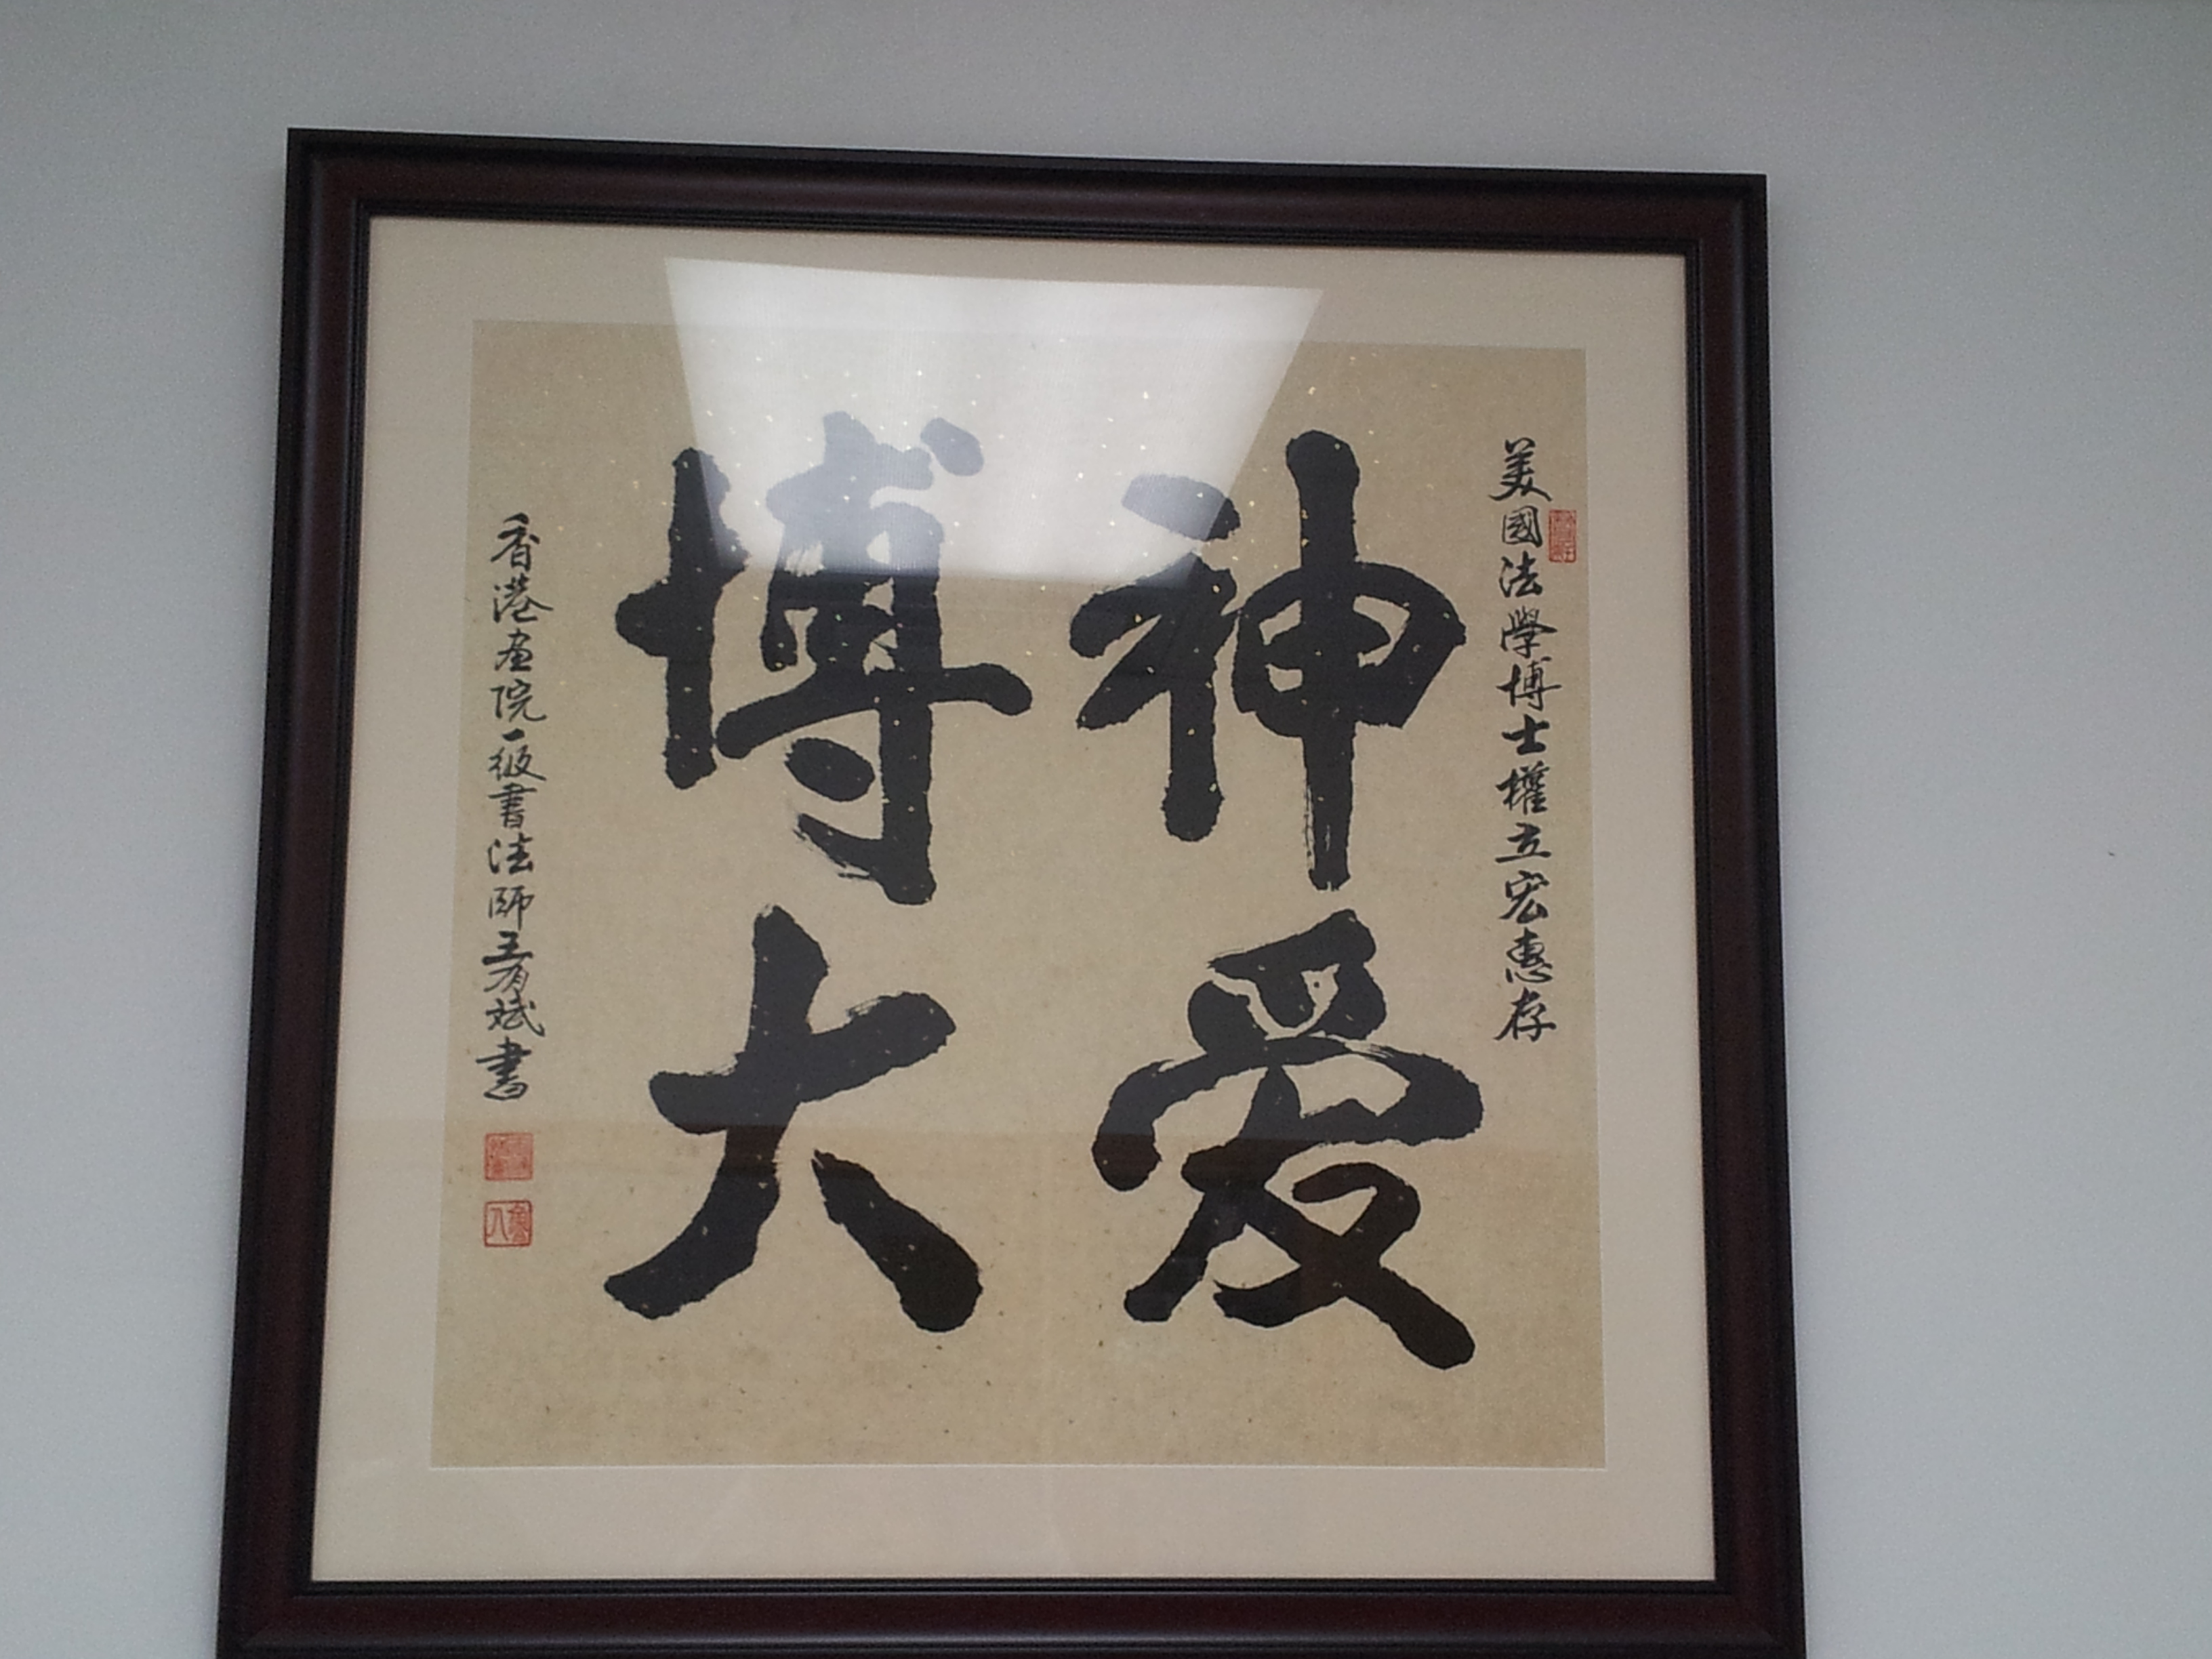 美國法學博士權立宏惠存
神爱
博大
香港画院一级書法師王有斌書